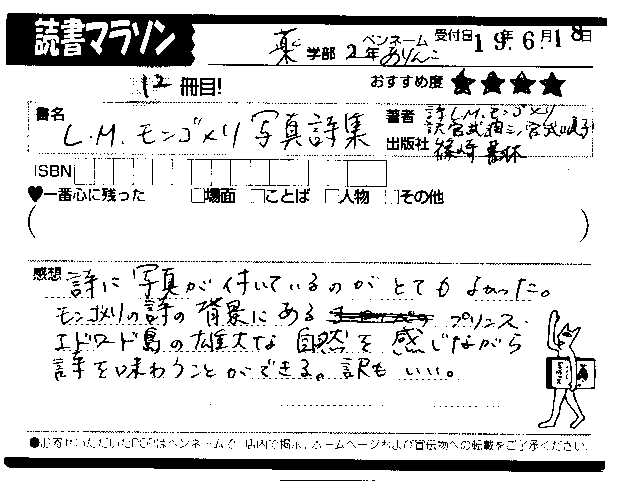 読書マラソン
薬 学部 2年 ペンネーム ありんこ 受付日 19年 6月18日
12 冊目! おすすめ度 ★★★★
書名 L.M.モンゴメリ写真詩集
著者 詩 L.M.モンゴメリ
訳 宮武潤三 宮武順子
出版社 篠崎書林
ISBN
♥一番心に残った □場面 □ことば □人物 □その他
( )
感想 詩に写真が付いているのがとてもよかった。
モンゴメリの詩の背景にある プリンス
エドワード島の雄大な自然を感じながら
詩を味わうことができる。訳もいい。
●お寄せいただいたPOPはペンネームで、店内で掲示、ホームページおよび宣伝物への転載をご了承ください。